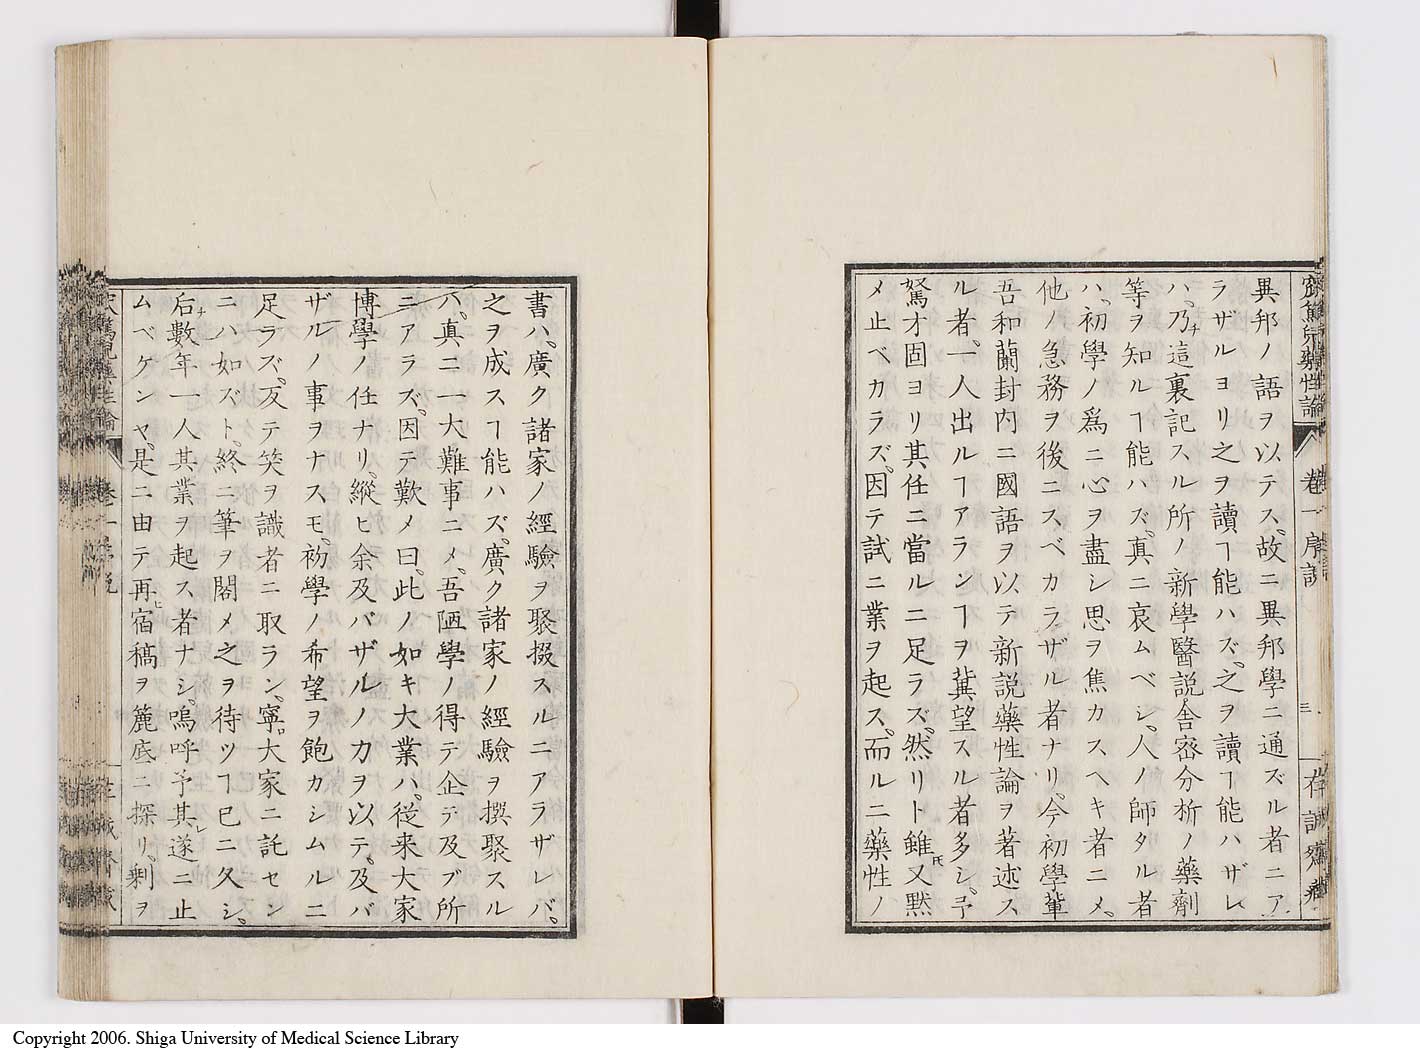 齋鳥兒藥性論 卷一 序説 三 存誠齋藏
異邦ノ語ヲ以テス。故ニ異邦學ニ通ズル者ニア
ラザルヨリ之ヲ讀ヿ能ハズ。之ヲ讀ヿ能ハザレ
ハ、乃チ這裏記スル所ノ新學醫説舎密分析ノ藥劑
等ヲ知ルヿ能ハズ。真ニ哀ムベシ。人ノ師タル者
ハ、初學ノ爲ニ心ヲ盡シ思ヲ焦カスヘキ者ニ〆。
他ノ急務ヲ後ニスベカラザル者ナリ。今初學輩
吾和蘭封内ニ國語ヲ以テ新説藥性論ヲ著述ス
ル者、一人出ルヿアランヿヲ冀望スル者多シ。予
駑才固ヨリ其任ニ當ルニ足ラズ。然リト雖𪜈又默
〆止ベカラズ。因テ試ニ業ヲ起ス。而ルニ藥性ノ
書ハ、廣ク諸家ノ經驗ヲ聚掇スルニアラザレバ、
之ヲ成スヿ能ハズ。廣ク諸家ノ經驗ヲ撰聚スル
ハ、真ニ一大難事ニ〆。吾陋學ノ得テ企テ及ブ所
ニアラズ。因テ歎〆曰。此ノ如キ大業ハ、従来大家
博學ノ任ナリ。縱ヒ余及バザルノ力ヲ以テ、及バ
ザルノ事ヲナスモ、初學ノ希望ヲ飽カシムルニ
足ラズ。反テ笑ヲ識者ニ取ラン。寧。大家ニ託セン
ニハ如ズト。終ニ筆ヲ閣〆之ヲ待ツヿ已ニ久シ。
后チ數年一人其業ヲ起ス者ナシ。嗚呼予其レ遂ニ止
ムベケンヤ。是ニ由テ再ヒ宿稿ヲ簏底ニ探リ、剰ヲ
卷一